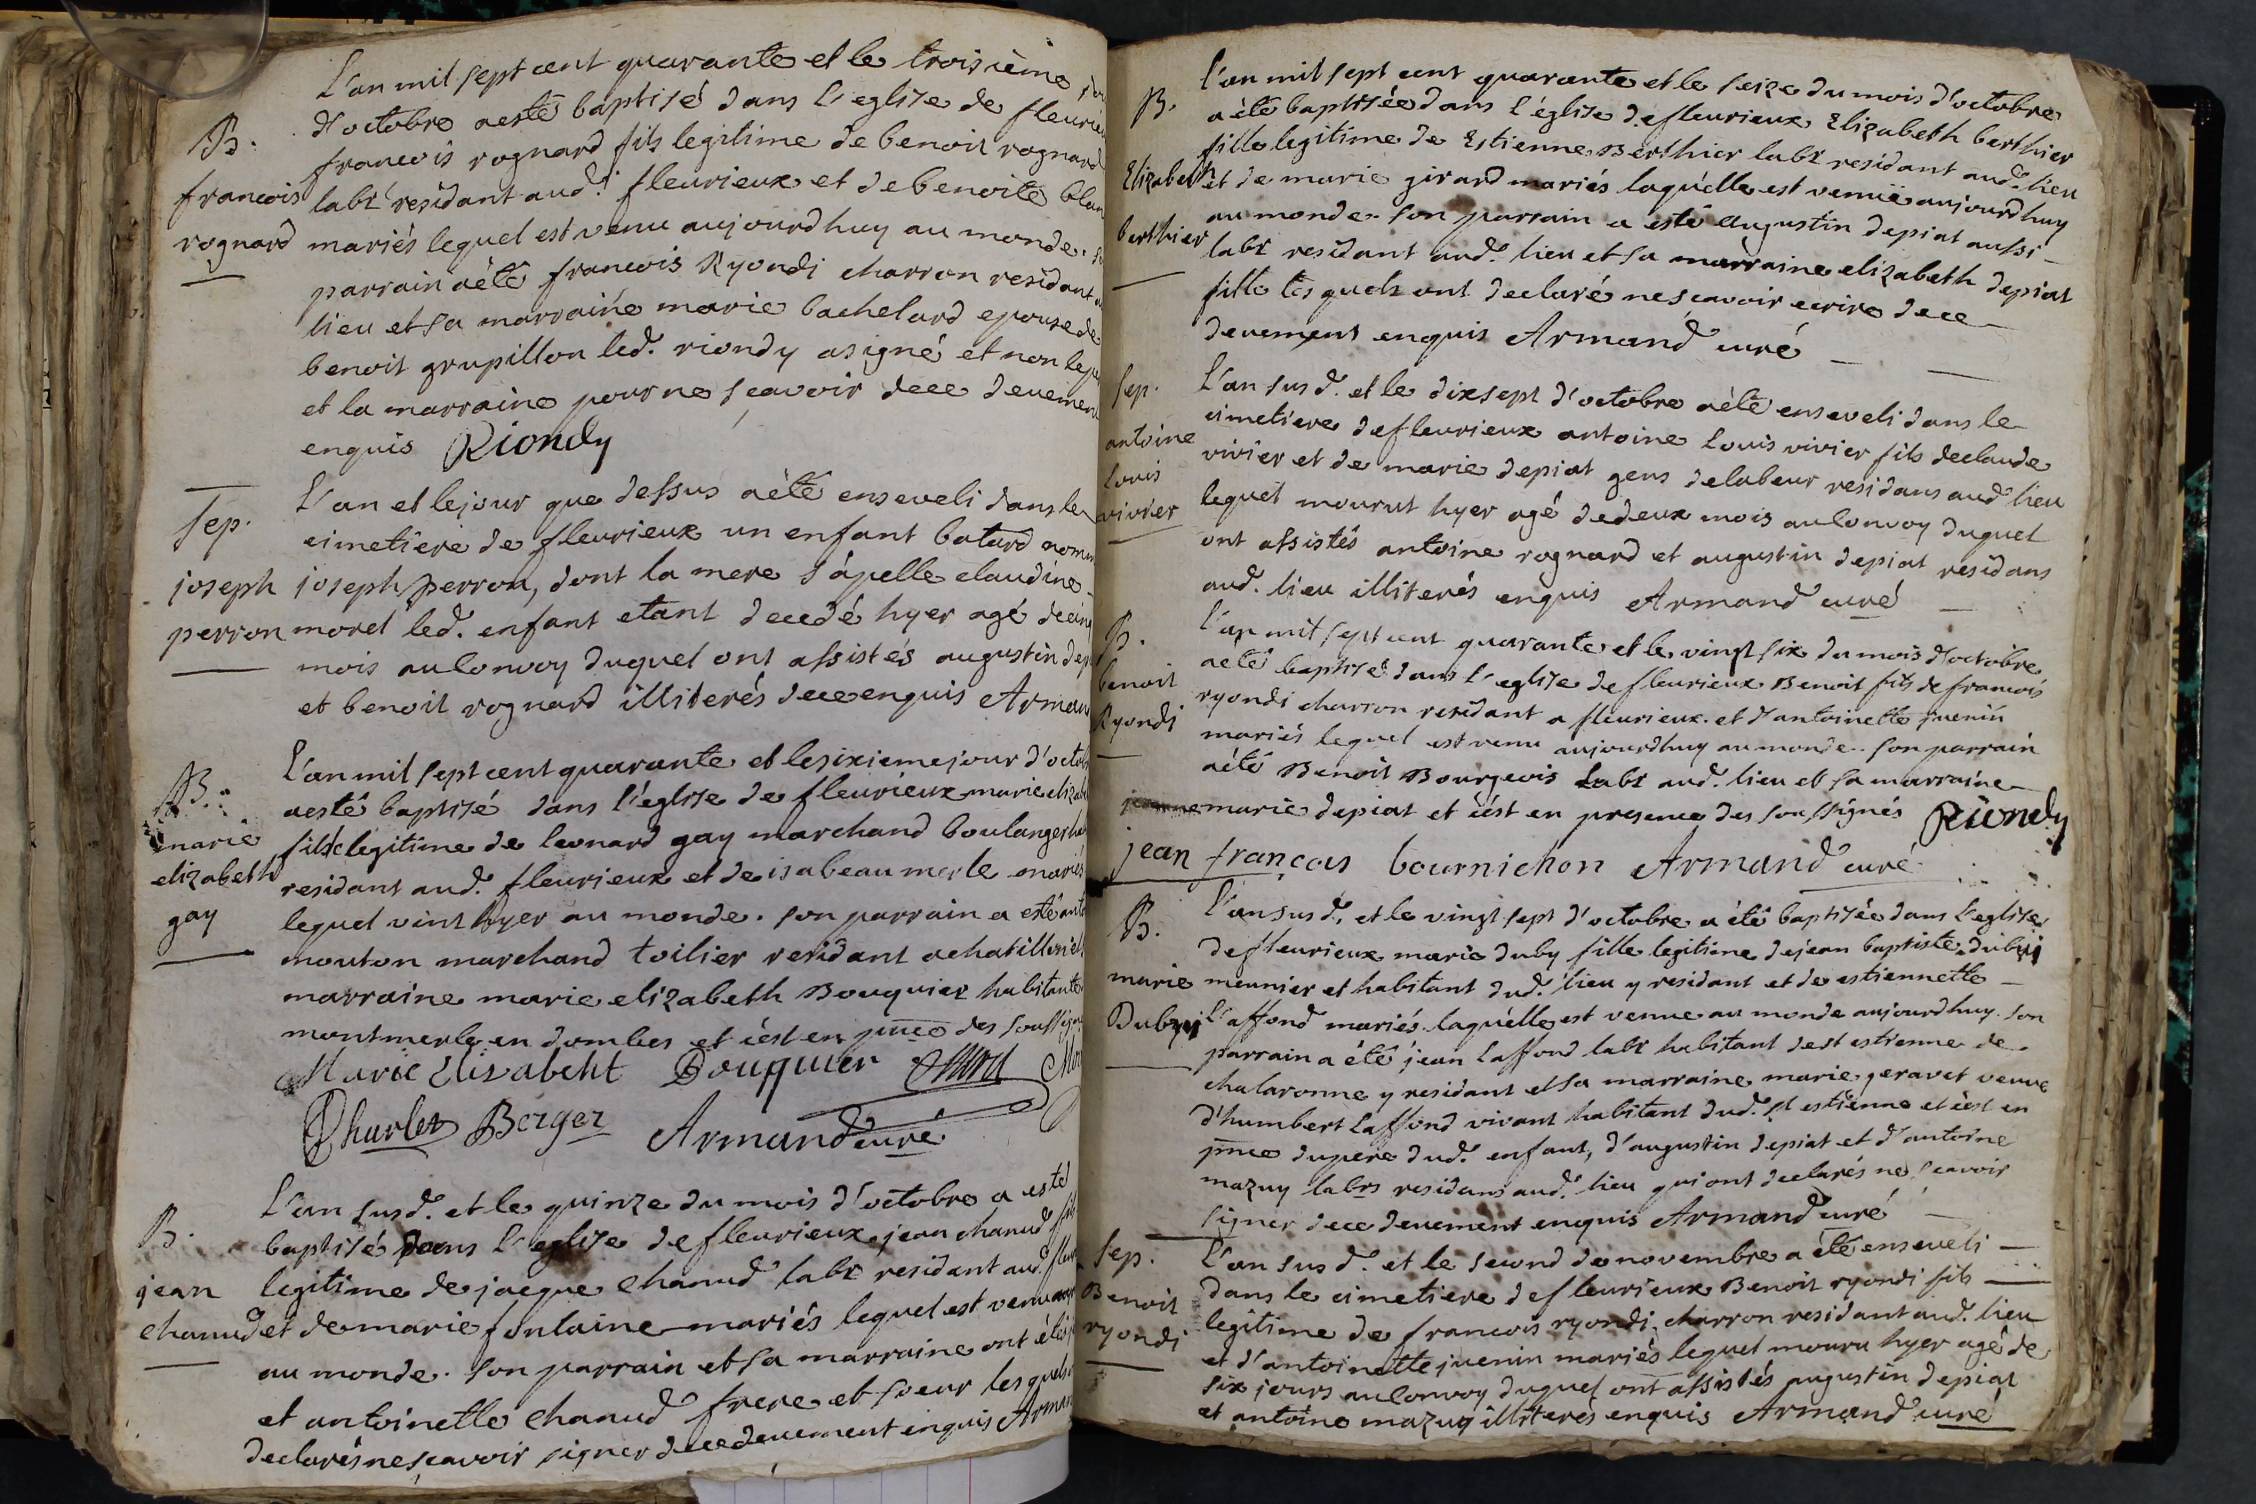 L'an mil sept cent quarante et le troisième
d'octobre a esté baptisé dans l'eglise de fleurieux
B.
francois rognard fils legitime de benoit rognard
francois
labr residant aud.t fleurieux et de benoite blan
rognard
mariés lequel est venu aujourdhuy au monde.
parrain a été francois Ryondi charron residant
lieu et sa marraine marie bachelard epouse de
benoit grupillon led. riondy a signé et non le
et la marraine pour ne scavoir de ce deuement
enquis Riondy
Sep.
L'an et le jour que dessus a été enseveli dans le
cimetiere de fleurieux un enfant batard nom
joseph
joseph perron, dont la mere s'apelle claudine
perron
morel led. enfant etant decedé hyer agé de cinq
mois au convoy duquel ont assistés augustin dep
et benoit rognard illiterés de ce enquis Arman
B.
L'an mil sept cent quarante et le sixieme jour d'octob
a esté baptisé dans l'eglise de fleurieux marie elizab
marie
fille legitime de leonard gay marchand boulanger
elizabeth
residant aud. fleurieux et de isabeau merle mariés
gay
lequel vint hyer au monde. son parrain a esté ant
mouton marchand toilier residant a chatillon et
marraine marie elizabeth Bouquier habitante
montmerle en dombes et c'est en pnce des soussign
Marie Elisabeht Bouquier
Charles Berger Armand curé
B.
L'an susd. et le quinze du mois d'octobre a esté
baptisé dans l'eglise de fleurieux jean chanud fils
jean
legitime de jacque chanud labr residant aud. fleur
chanud
et de marie fontaine mariés lequel est venu auj
au monde. son parrain et sa marraine ont été
et antoinette chanud frere et soeur les quels
declarés ne scavoir signer de ce deuement enquis Arman
B.
L'an mil sept cent quarante et le seize du mois d'octobre
a été baptisée dans l'église de fleurieux Elizabeth berthier
fille legitime de Estienne Berthier labr residant aud. lieu
Elizabeth
et de marie girard mariés laquelle est venuë aujourdhuy
berthier
au monde. son parrain a esté augustin depiat aussi
labr residant aud. lieu et sa marraine elizabeth depiat
fille les quels ont declaré ne scavoir ecrire de ce
deuement enquis Armand curé
Sep.
L'an susd. et le dixsept d'octobre a été enseveli dans le
antoine
cimetiere de fleurieux antoine Louis vivier fils de claude
Louis
vivier et de marie depiat gens de labeur residans aud. lieu
vivier
lequel mourut hyer agé de deux mois au convoy duquel
ont assistés antoine rognard et augustin depiat residans
aud. lieu illiterés enquis Armand curé
B.
L'an mil sept cent quarante et le vingt six du mois d'octobre
benoit
a eté baptisé dans l'eglise de fleurieux Benoit fils de francois
Ryondi
ryondi charron residant a fleurieux et d'antoinette juenin
mariés lequel est venu aujourdhuy au monde. son parrain
a été Benoit Bourgeois labr aud. lieu et sa marraine
jeanne marie depiat et c'est en presence des soussignés Riondy
jean françois bournichon Armand curé
B.
L'an susd. et le vingt sept d'octobre a été baptisée dans l'eglise
de fleurieux marie duby fille legitime de jean baptiste duby
marie
meunier et habitant dud. lieu y residant et de estiennette
Duby
Laffond mariés laquelle est venue au monde aujourdhuy. son
parrain a été jean Laffond labr habitant de st estienne de
chalaronne y residant et sa marraine marie geravet veuve
d'humbert Laffond vivant habitant dud. st estienne et c'est en
pnce du pere dud. enfant, d'augustin depiat et d'antoine
mazuy labrs residans aud. lieu qui ont declarés ne scavoir
signer de ce deuement enquis Armand curé
Sep.
L'an susd. et le second de novembre a été enseveli
Benoit
dans le cimetiere de fleurieux Benoit ryondi fils
ryondi
legitime de francois ryondi charron residant aud. lieu
et d'antoinette juenin mariés lequel mouru hyer agé de
six jours au convoy duquel ont assistés augustin depiat
et antoine mazuy illiterés enquis Armand curé